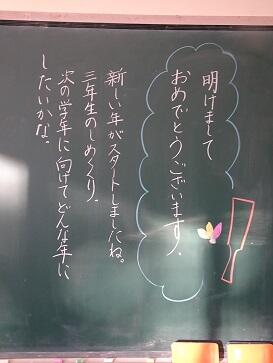 明けまして
おめでとうございます。
新しい年がスタートしましたね。
三年生のしめくくり。
次の学年に向けてどんな年に
したいかな。